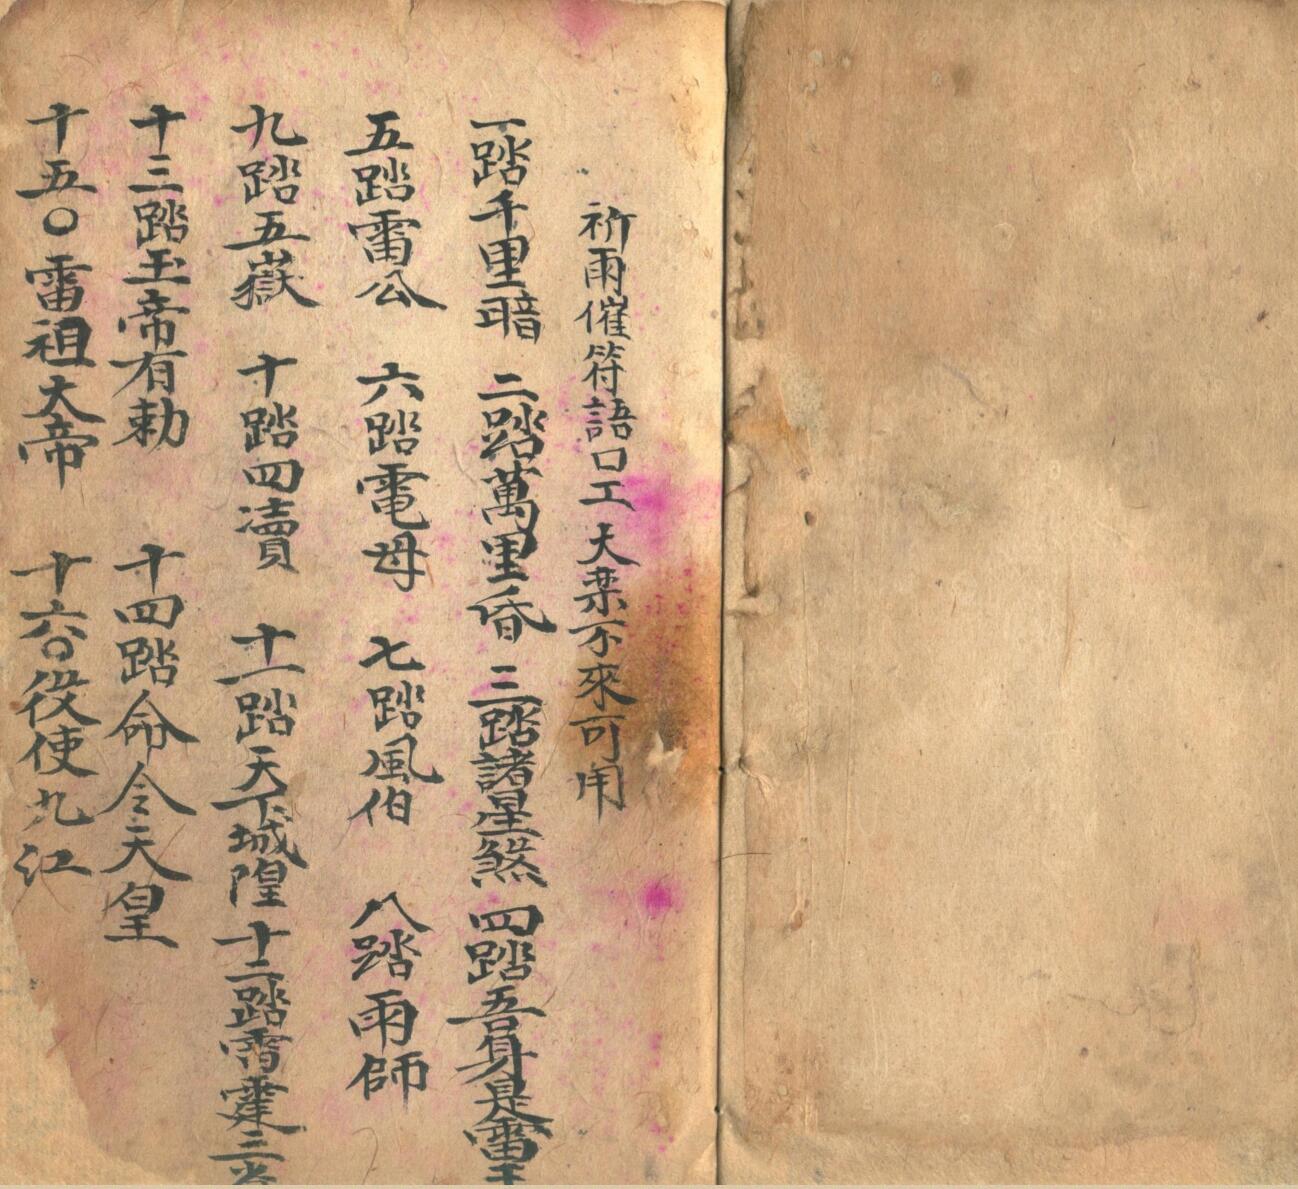 祈雨催符語口工 大業不來可用
一踏千里暗 二踏萬里昏 三踏諸星煞 四踏吾身是雷
五踏雷公 六踏電母 七踏風伯 八踏雨師
九踏五嶽 十踏四瀆 十一踏天下城隍 十二踏霄霆三
十三踏玉帝有勅 十四踏命令天皇
十五〇雷祖大帝 十六〇役使九江